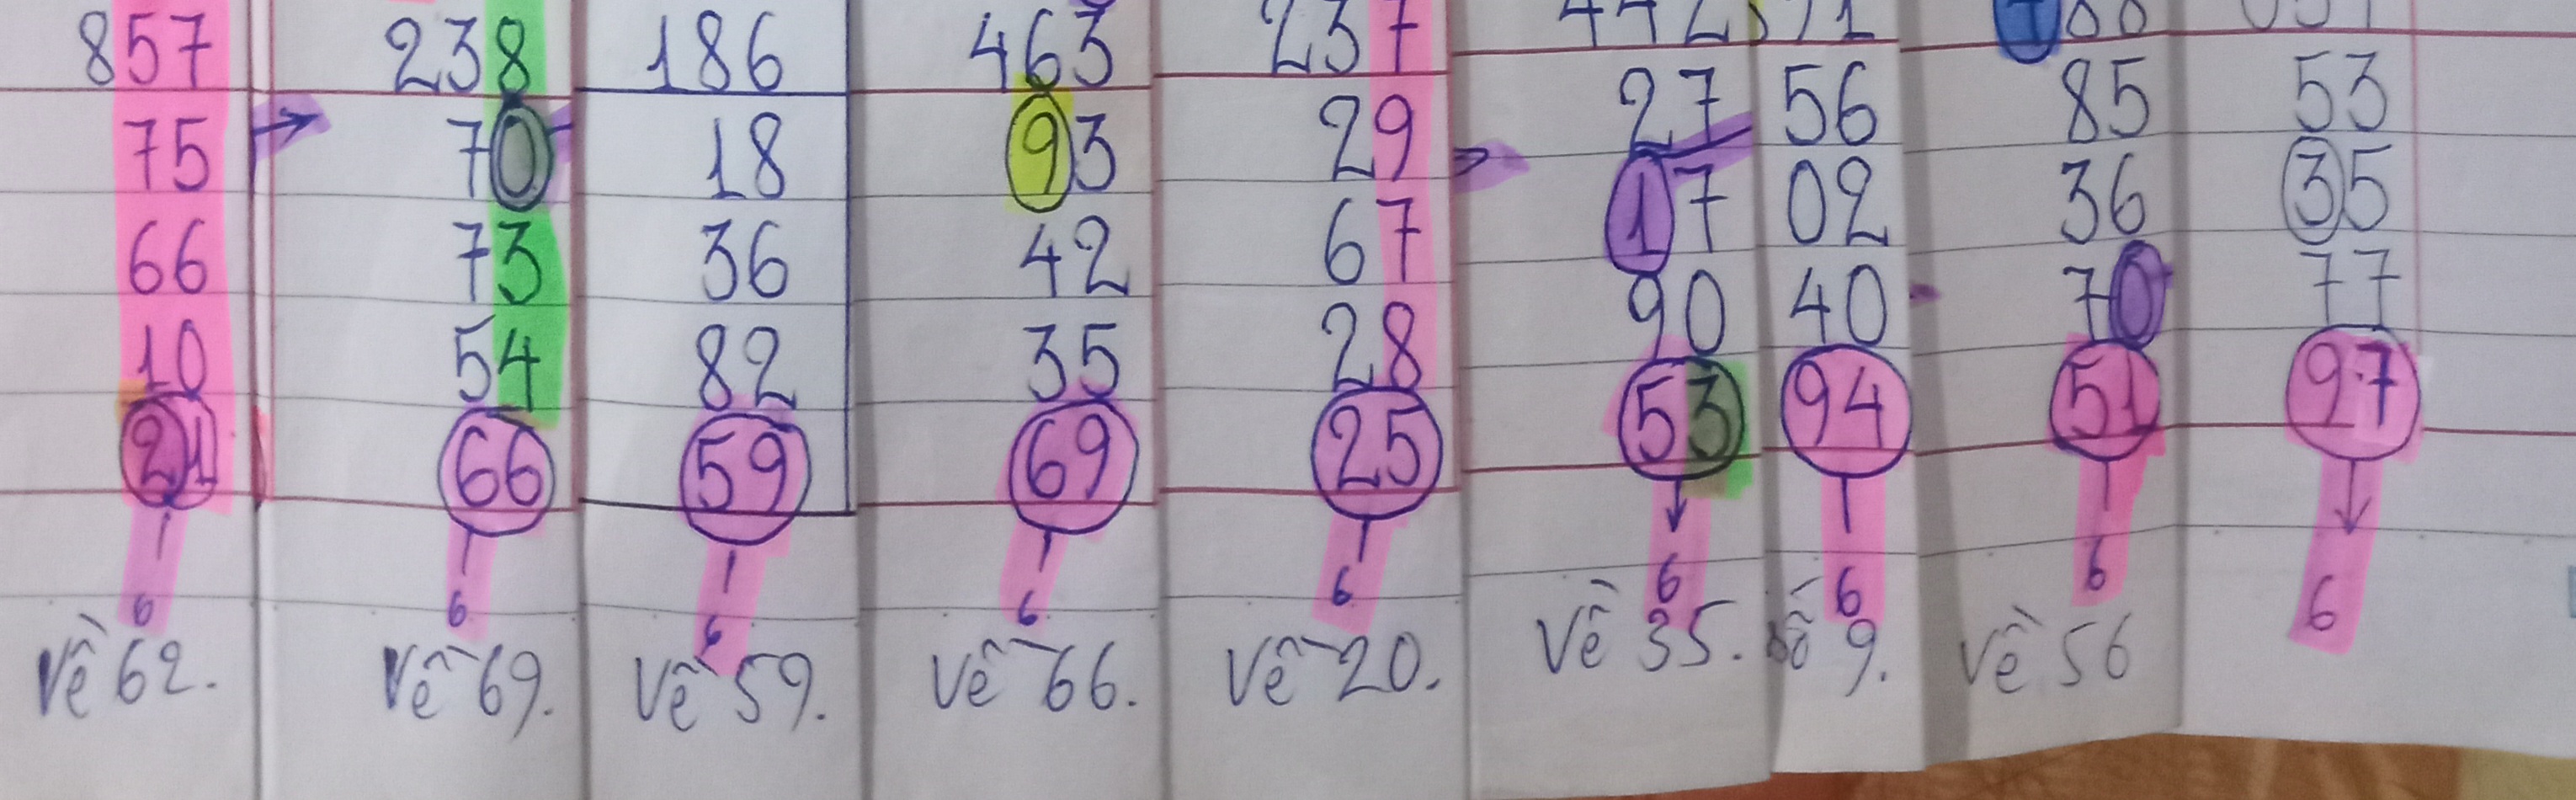 857 238 186 463 237
75 70 18 93 29 27 56 85 53
66 73 36 42 67 17 02 36 35
10 54 82 35 28 90 40 70 77
21 66 59 69 25 53 94 51 97
6 6 6 6 6 6 6 6 6
Về 62. Về 69. Về 59. Về 66. Về 20. Về 35. 9. Về 56